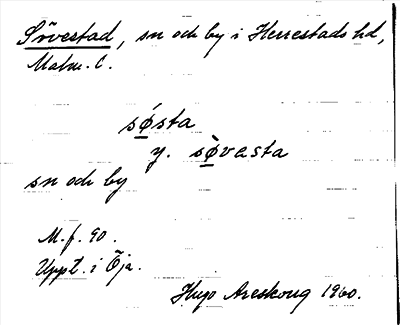 Sövestad, sn och by i Herrestads hd,
Malm. l.
sǿsta
y. sø̀vasta
sn och by
M. f. 90.
Uppt. i Öja.
Hugo Areskoug 1960.